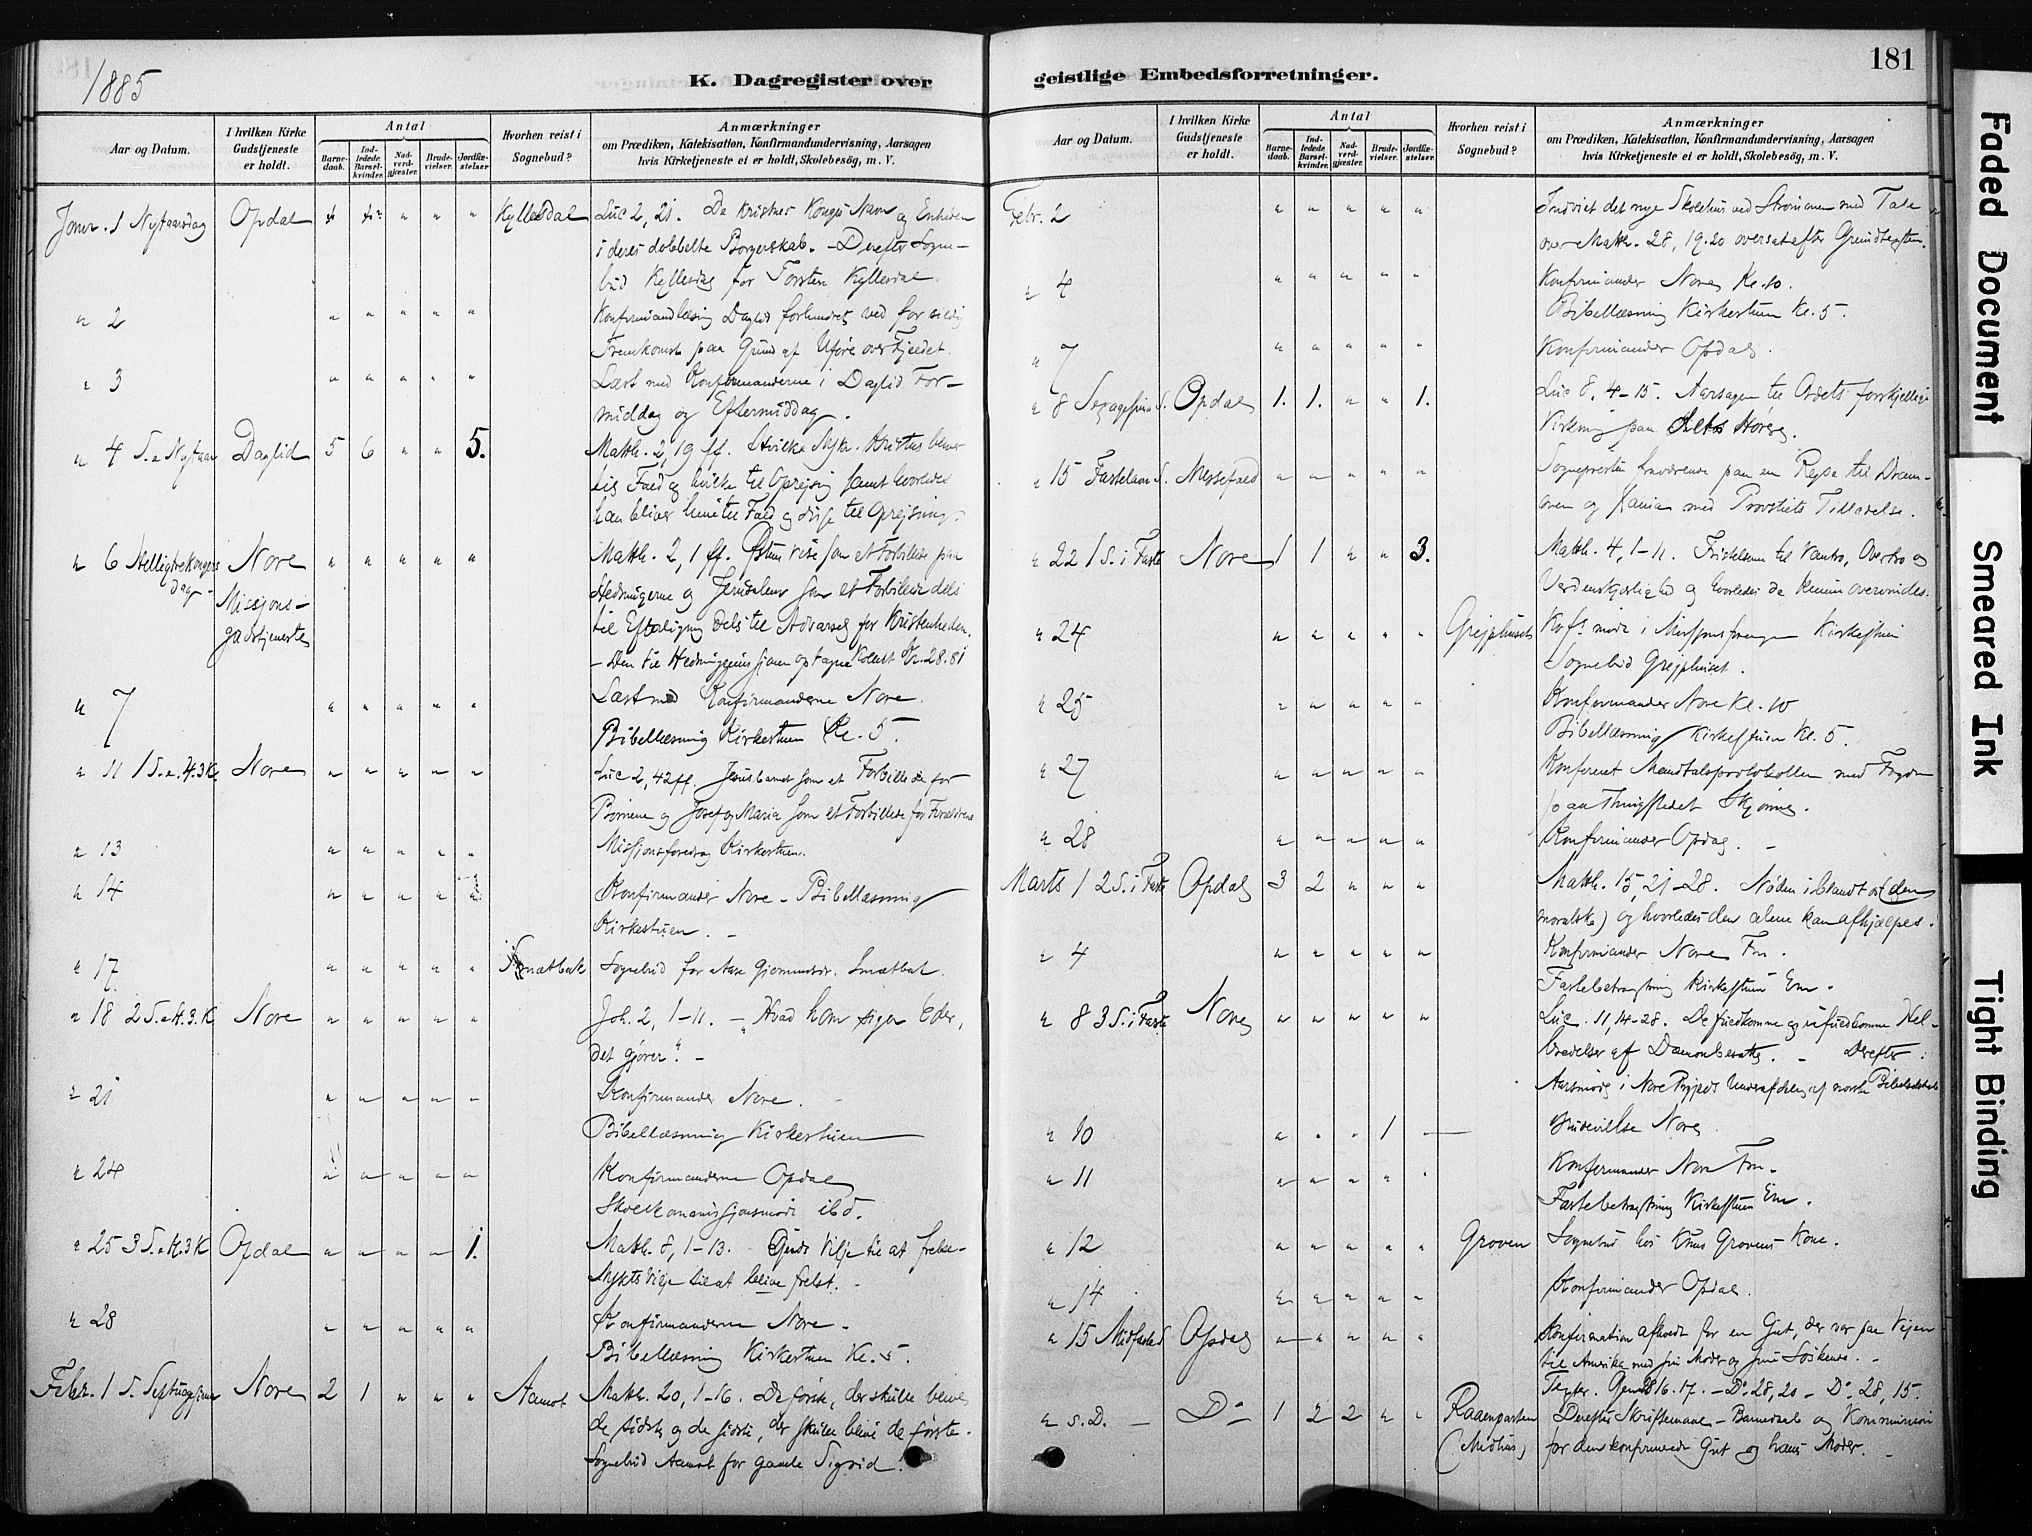 1885
K. Dagregister over
geistlige Embedsforretninger.
181
Aar og Datum.
I hvilken Kirke Gudstjeneste er holdt.
Antal
Barnedaab.
Indledede Barselkvinder.
Nadverdgjester.
Brudevielser.
Jordfæstelser.
Hvorhen reist i Sognebud?
Anmærkninger
om Prædiken, Katekisation, Konfirmandundervisning, Aarsagen
hvis Kirketjeneste ei er holdt, Skolebesög, m. V.
1 Nytaarsdag Opdal " " " Kyllesdal Luc 2, 21. De Kristnes Konges Navn og Enheden
i deres dobbelte Borgerskab. - Derefter Sogne-
bud for Torsten Kyllesdal
" 2 " " " " " Daglid ved for sildig
Fremkomst paa Grund af Uføre over Fjeldet.
" 3 " " " " " Læst med Konfirmanderne i Daglid For-
middag og Eftermiddag.
" 4 S. e Nytaar Daglid 5 6 " " 5. Matth. 2, 19 ff.
" 6 Helligtrekongers Nore " " " " " Matth. 2, 1 ff. som et Forbillede paa
dag Missjons- Hedningerne og som et Forbillede dels
gudstjeneste til Efterligning dels til Advarsel for Kristenheden.
" 7 " " " " " Læst med Konfirmanderne Nore.
Bibellæsning Kirkestuen Kl. 5.
" 11 1 S. e. H. 3 K. Nore " " " " " Luc 2, 42 ff. Jesusbarnet som et Forbillede for
Børnene og Josef og Maria som et Forbillede for Forældrene
" 13 " " " " " Missjonsforedrag Kirkestuen.
" 14 " " " " " Konfirmander Nore - Bibellæsning
Kirkestuen. -
" 17 " " " " " Smætbak Sognebud for Aase Smætbak.
" 18 2 S. e H. 3. K Nore " " " " " Joh. 2, 1-11. - "Hvad han siger Eder,
det gjører". -
" 21 " " " " " Konfirmander Nore. -
Bibellæsning Kirkestuen
" 24 " " " " " Konfirmanderne Opdal
ibd.
" 25 3 S. e H. 3 K Opdal " " " " 1. Matth. 8, 1-13. Guds Vilje til at frelse -
Vilje til at blive frelst. -
" 28 " " " " " Konfirmanderne Nore -
Bibellæsning Kirkestuen Kl. 5.
Febr. 1 S. Nore 2 1 " " " Aamot Matth. 20, 1-16. De første, der skulle blive
de sidste og de sidste, der skulle blive de første.
Sognebud Aamot for gamle Sigrid.
Aar og Datum.
I hvilken Kirke Gudstjeneste er holdt.
Antal
Barnedaab.
Indledede Barselkvinder.
Nadverdgjester.
Brudevielser.
Jordfæstelser.
Hvorhen reist i Sognebud?
Anmærkninger
om Prædiken, Katekisation, Konfirmandundervisning, Aarsagen
hvis Kirketjeneste ei er holdt, Skolebesög, m. V.
Febr. 2 " " " " " Indviet det nye Skolehus ved med Tale
over Matth. 28, 19. 20 oversat efter Grundtexten.
" 4 " " " " " Konfirmander Nore Kl. 10.
Bibellæsning Kirkestuen Kl. 5.
" 7 " " " " " Konfirmander Opdal.
" 8 S. Opdal 1. 1. " " 1. Luc 8, 4-15. Aarsagen til Ordets forskjellige
Virkning paa
" 15 Fastelavn S. Messefald " " " " " Sognepresten fraværende paa en Rejse til Dram-
men og med Provstiets Tilladelse.
" 22 1 S. i Faste Nore 1 1 " " 3. Matth. 4, 1-11. Fristelserne til Vantro, Overtro og
Verdenskjærlighed og hvorledes de kunne overvindes.
" 24 " " " " " Kirkestuen
Sognebud
" 25 " " " " " Konfirmander Nore Kl. 10
Bibellæsning Kirkestuen Kl. 5.
" 27 " " " " " Konfereret Mandtalsprotokollen med Fogden
paa Thingstedet Skjønne.
" 28 " " " " " Konfirmander Opdal. -
Marts 1 2 S. i Faste Opdal 3 2 " " " Matth. 15, 21-28. Nøden iblandt os (den
moralske) og hvorledes den alene kan afhjælpes.
" 4 " " " " " Konfirmander Nore Fm.
Fastebetragtning Kirkestuen Em.
" 8 3 S. i Faste Nore " " " " " Luc. 11, 14-28. De fuldkomne og ufuldkomne Hel-
bredelser af Dæmonbesatte. - Derefter
Aarsmøde i Nore af norske
" 10 " " " 1 " Brudevielse Nore
" 11 " " " " " Konfirmander Nore Fm.
Fastebetragtning Kirkestuen Em.
" 12 " " " " " Groven Sognebud hos Knut Grovens Kone.
" 14 " " " " " Konfirmander Opdal.
" 15 Midfaste S Opdal " " " " " Konfirmation afholdt for en Gut, der var paa Vejen
til Amerika med sin Moder og sine Søskende. -
Texter. 16. 17. - Do 28, 20 - Do 28, 15.
" s. D. - Do 1 2 2 " " Raaenparten Derefter Skriftemaal - Barnedaab og Kommunion
(Midhus) for den konfirmerede Gut og hans Moder. -
Faded Document
Smeared Ink
Tight Binding